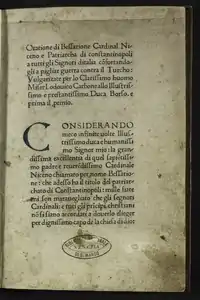 Oratione di Bessarione Cardinal Ni
ceno e Patriarcha di constantinopoli
a tutti gli Signori ditalia cōfortando
gli a pigliar guerra contra il Turcho:
Vulgarizate per lo Clarissimo huomo
Miser Lodouico Carbone allo Illustris
simo e prestantissimo Duca Borso. e
prima il
CONSIDERANDO
meco infinite uolte Illus
trissimo duca e humanissi
mo Signor mio: la gran
dissima excellentia di quel sapiētissi
mo padre e reuerēdissimo Cardinale
Niceno chiamato per nome Bessario
ne: che adesso ha il titolo del patriar
chato di Constantinopoli: mille fiate
mi son marauegliato che gli segnori
Cardinali: e tuti gli pricipi christiani
nō si siano accordati a douerlo elleger
per dignissimo capo de la chiesa di dio: